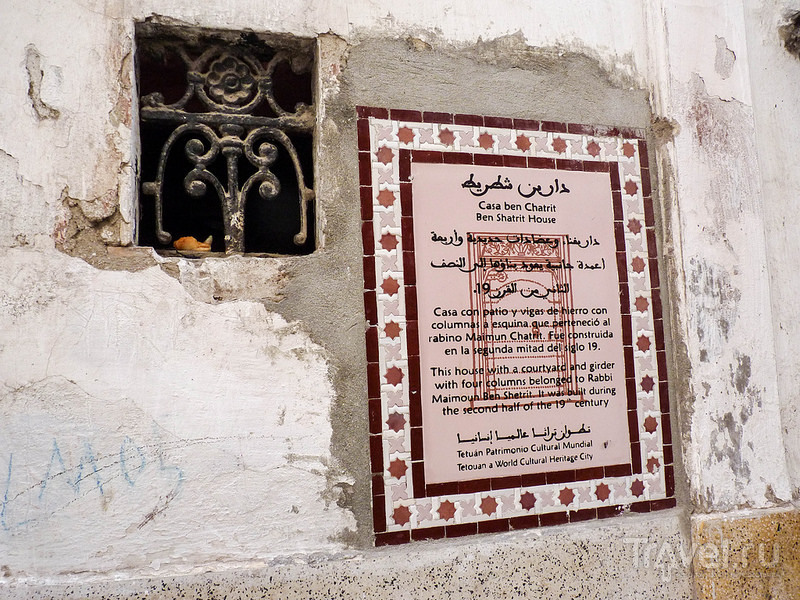 دار بن شطريط
Casa ben Chatrit
Ben Shatrit House
دار بفناء وعضادات حديدية وأربعة
أعمدة خاسية يعود بناؤها إلى النصف
الثاني من القرن 19.
Casa con patio y vigas de hierro con
columnas a esquina que perteneció al
rabino Maimun Chatrit. Fue construida
en la segunda mitad del siglo 19.
This house with a courtyard and girder
with four columns belonged to Rabbi
Maimoun Ben Shetrit. It was built during
the second half of the 19th century
تطوان تراثا عالميا إنسانيا
Tetuán Patrimonio Cultural Mundial
Tetouan a World Cultural Heritage City
Travel.ru